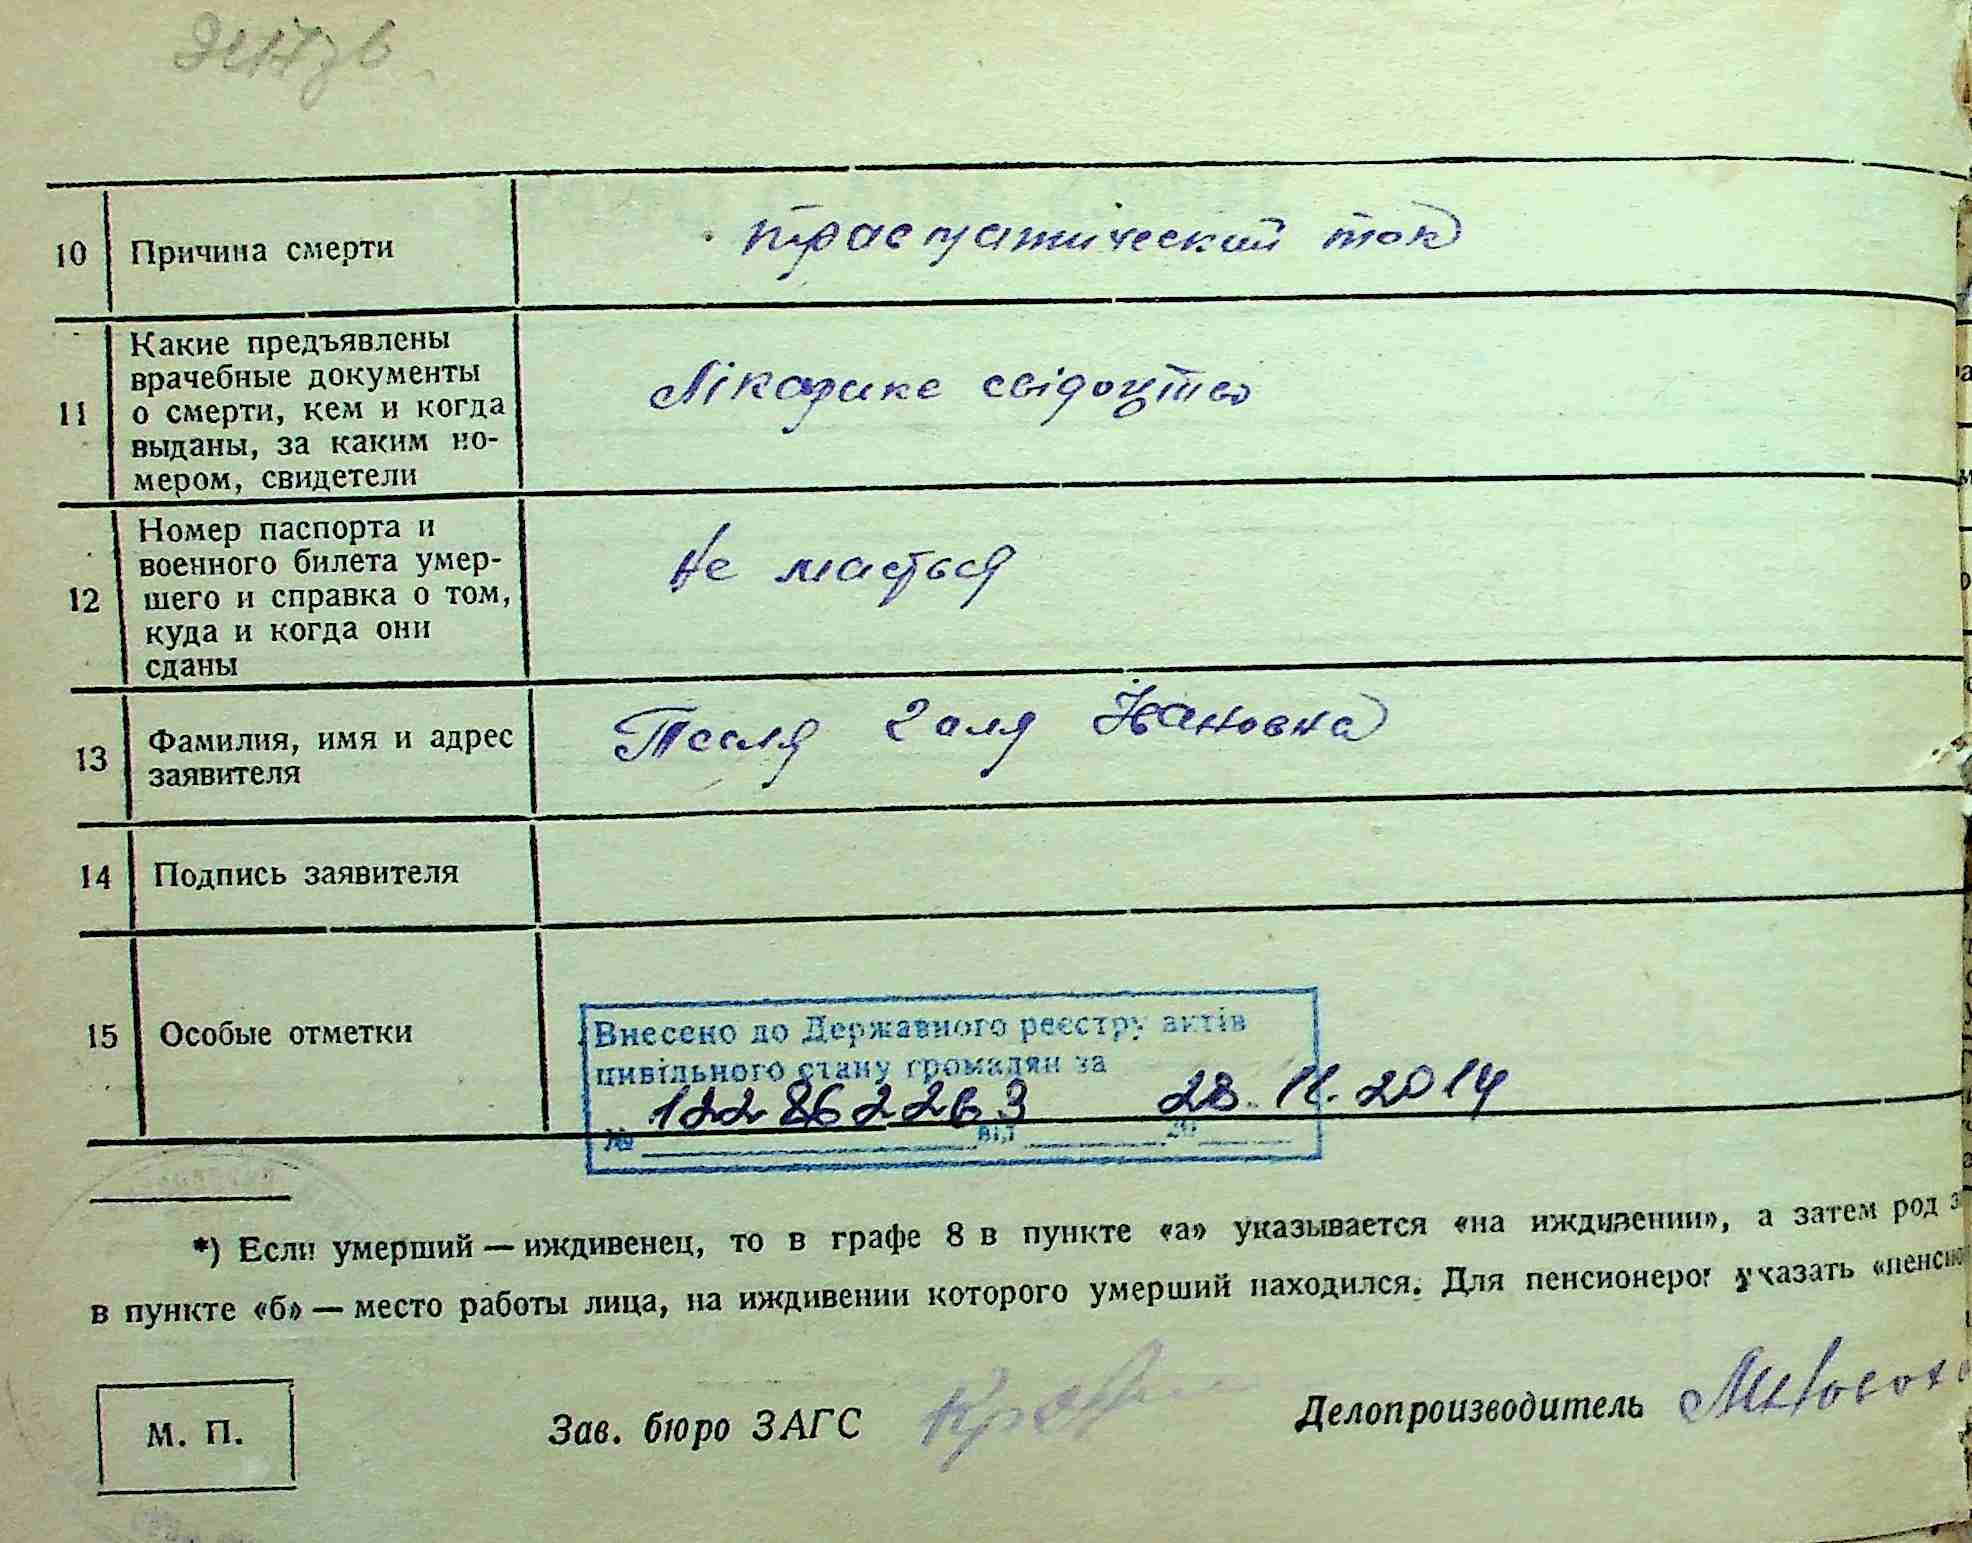 10 Причина смерти
траспатический ток
11 Какие предъявлены
врачебные документы
о смерти, кем и когда
выданы, за каким но-
мером, свидетели
Лікарике свідоцтво
12 Номер паспорта и
военного билета умер-
шего и справка о том,
куда и когда они
сданы
Не мається
13 Фамилия, имя и адрес
заявителя
Тесля Галя Івановна
14 Подпись заявителя
15 Особые отметки
Внесено до Державного реєстру актів
цивільного стану громадян за
№ 122862263 від 28.11.2014
*) Если умерший — иждивенец, то в графе 8 в пункте «а» указывается «на иждивении», а затем род
в пункте «б» — место работы лица, на иждивении которого умерший находился. Для пенсионеров указать
М. П.
Зав. бюро ЗАГС
Делопроизводитель